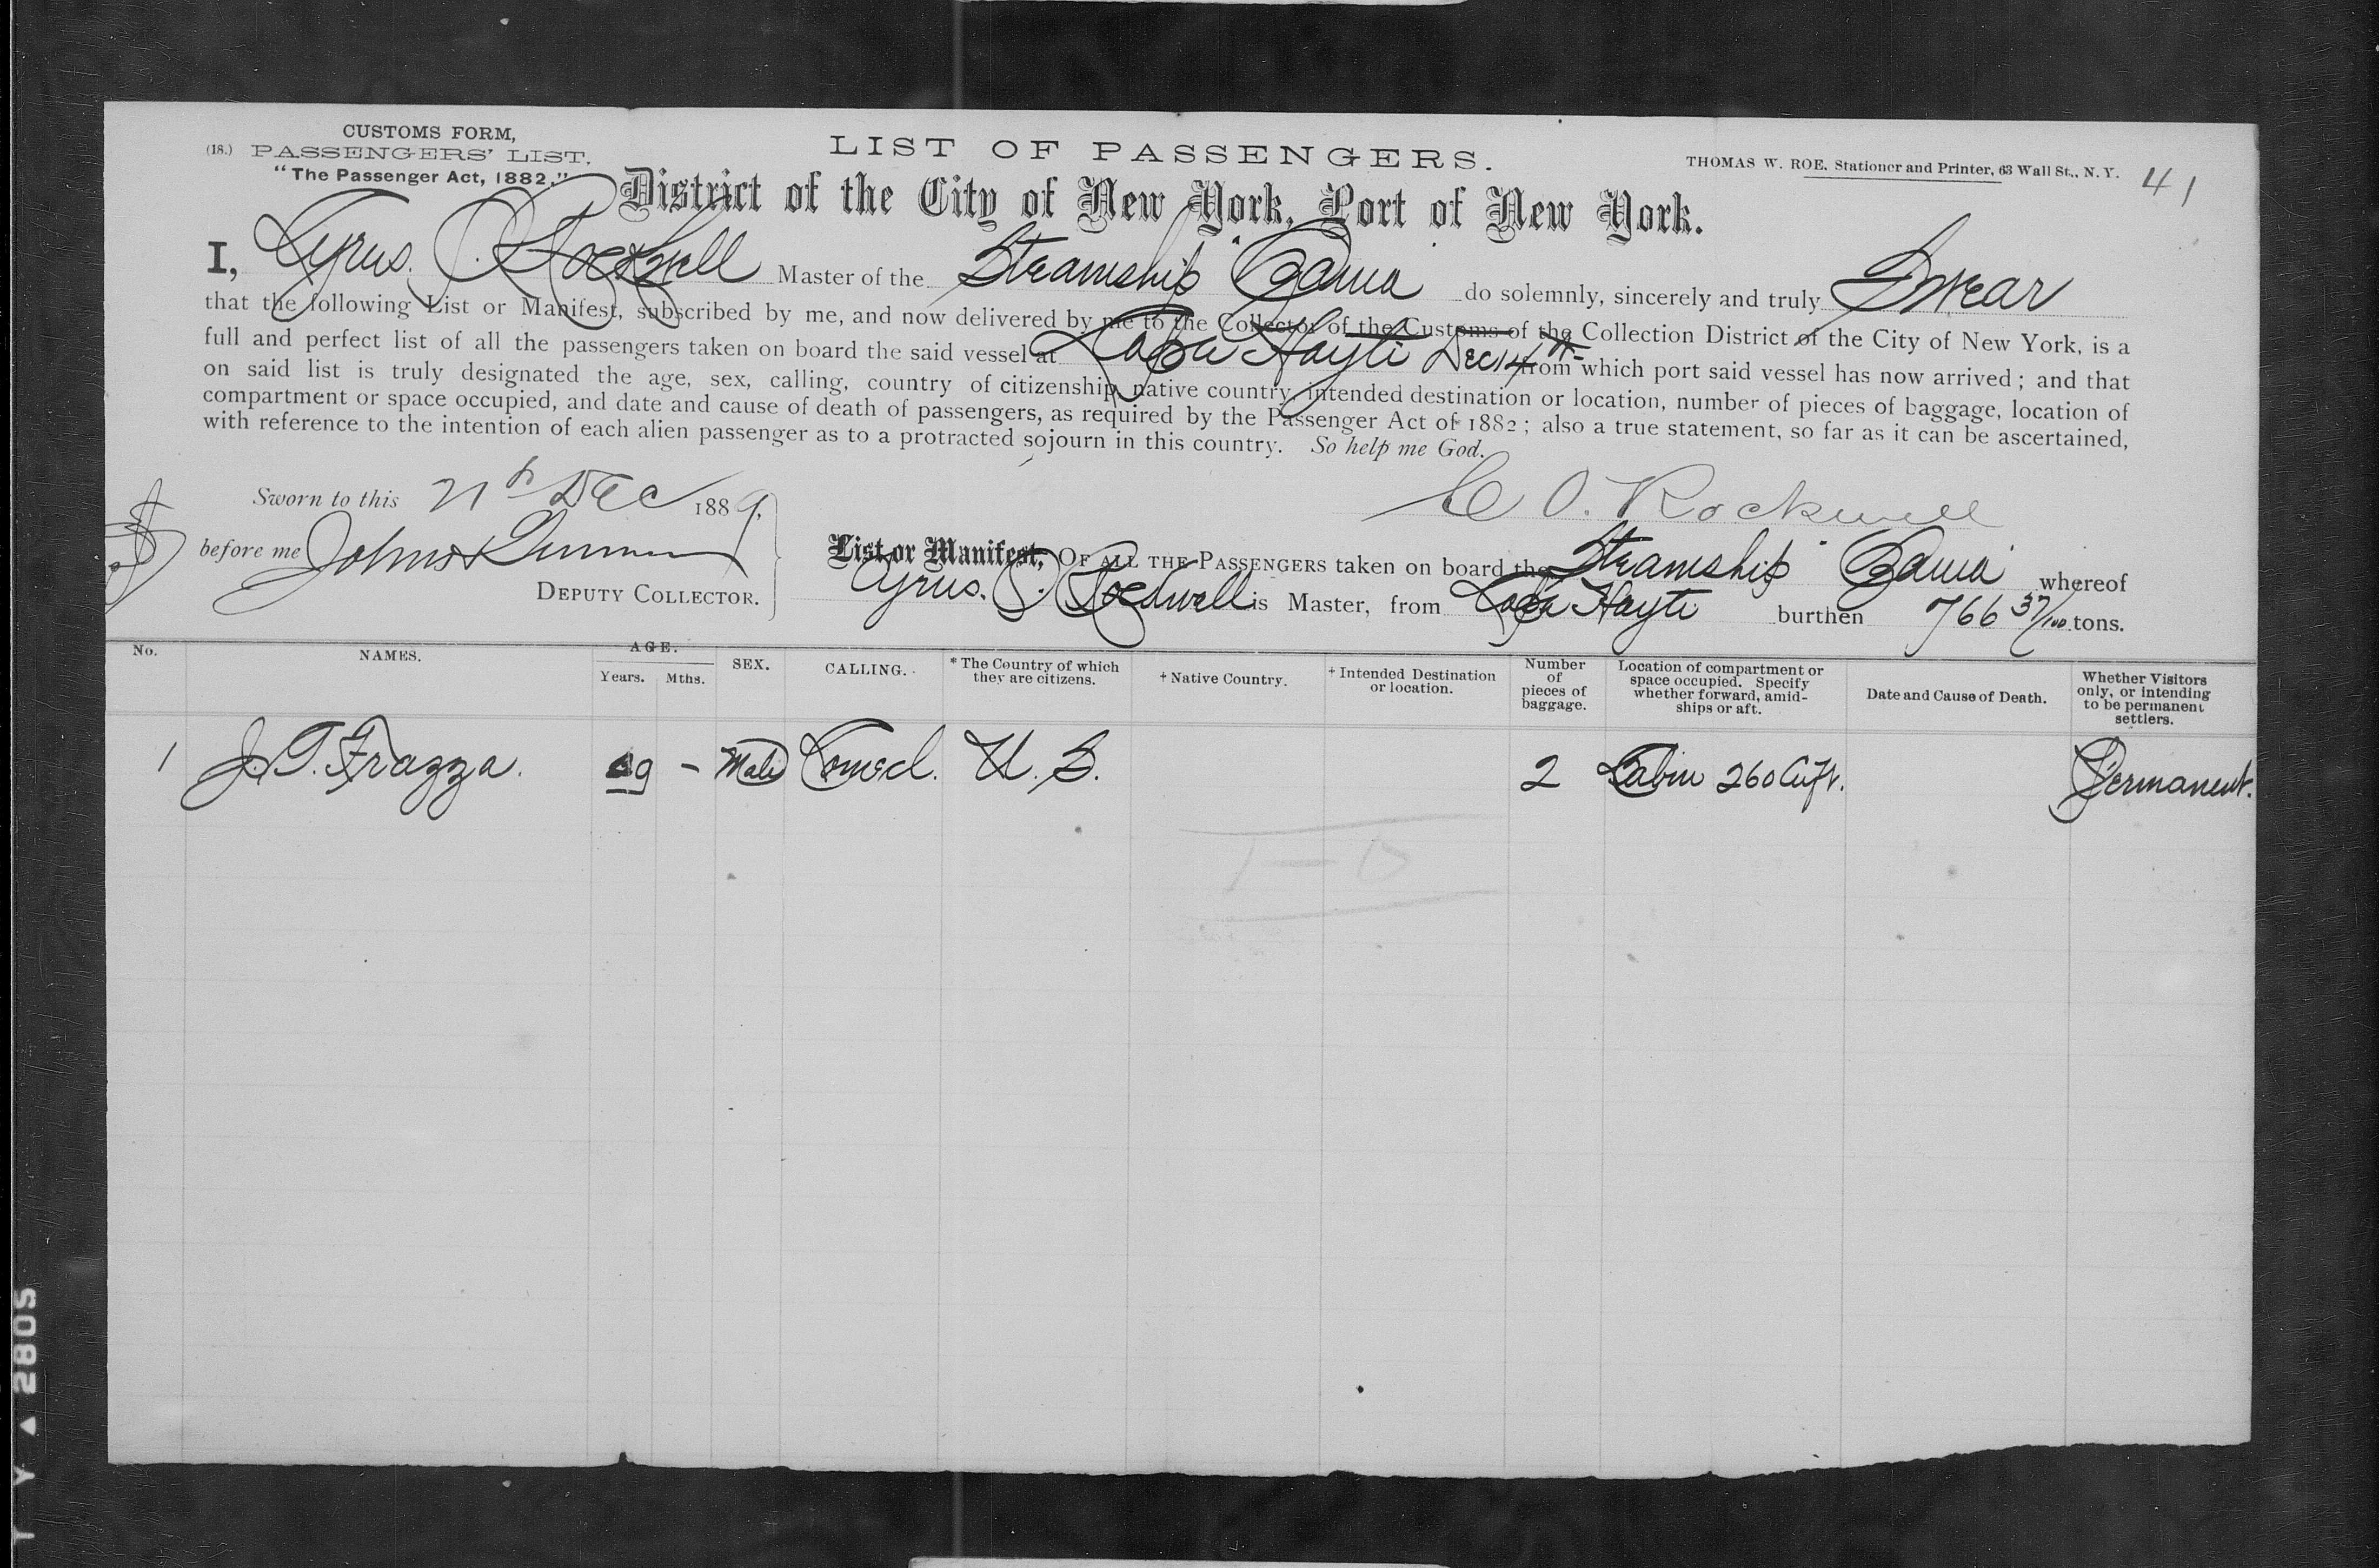 CUSTOMS FORM,
(18.) PASSENGERS' LIST.
"The Passenger Act, 1882."
LIST OF PASSENGERS.
THOMAS W. ROE, Stationer and Printer, 63 Wall St., N. Y.
41
District of the City of New York, Port of New York.
I, Cyrus. O. Rockwell Master of the Steamship "Bama" do solemnly, sincerely and truly Swear
that the following List or Manifest, subscribed by me, and now delivered by me to the Collector of the Customs of the Collection District of the City of New York, is a
full and perfect list of all the passengers taken on board the said vessel at Hayti Dec 14th from which port said vessel has now arrived; and that
on said list is truly designated the age, sex, calling, country of citizenship, native country, intended destination or location, number of pieces of baggage, location of
compartment or space occupied, and date and cause of death of passengers, as required by the Passenger Act of 1882; also a true statement, so far as it can be ascertained,
with reference to the intention of each alien passenger as to a protracted sojourn in this country. So help me God.
Sworn to this 21st Dec 1889,
C O. Rockwell
before me
DEPUTY COLLECTOR.
List or Manifest, OF ALL THE PASSENGERS taken on board the Steamship "Bama" whereof
Cyrus. O. Rockwell is Master, from Hayti burthen 766 37/100 tons.
No. NAMES. AGE. Years. Mths. SEX. CALLING. * The Country of which they are citizens. † Native Country. † Intended Destination or location. Number of pieces of baggage. Location of compartment or space occupied. Specify whether forward, amidships or aft. Date and Cause of Death. Whether Visitors only, or intending to be permanent settlers.
1 J. T. Frazza. – Male U. S. 2 Cabin 260 Cuft. Permanent.
2805